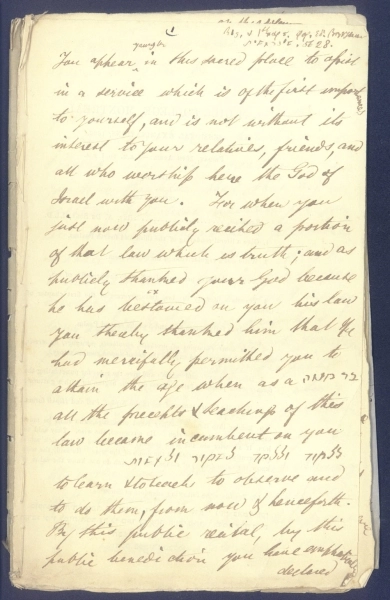 You appear in this sacred place to assist
in a service which is of the first import
to yourself, and is not without its
interest to your relatives, friends, and
all who worship here the God of
Israel with you. For when you
just now publicly recited a portion
of that law which is truth; and as
publicly thanked your God because
he has bestowed on you his law
you thereby thanked him that He
had mercifully permitted you to
attain the age when as a בר מצוה
all the precepts & teachings of this
law became incumbent on you
to learn & to teach to observe and
to do them, from now & henceforth.
By this public recital, by this
public benediction you have
declared